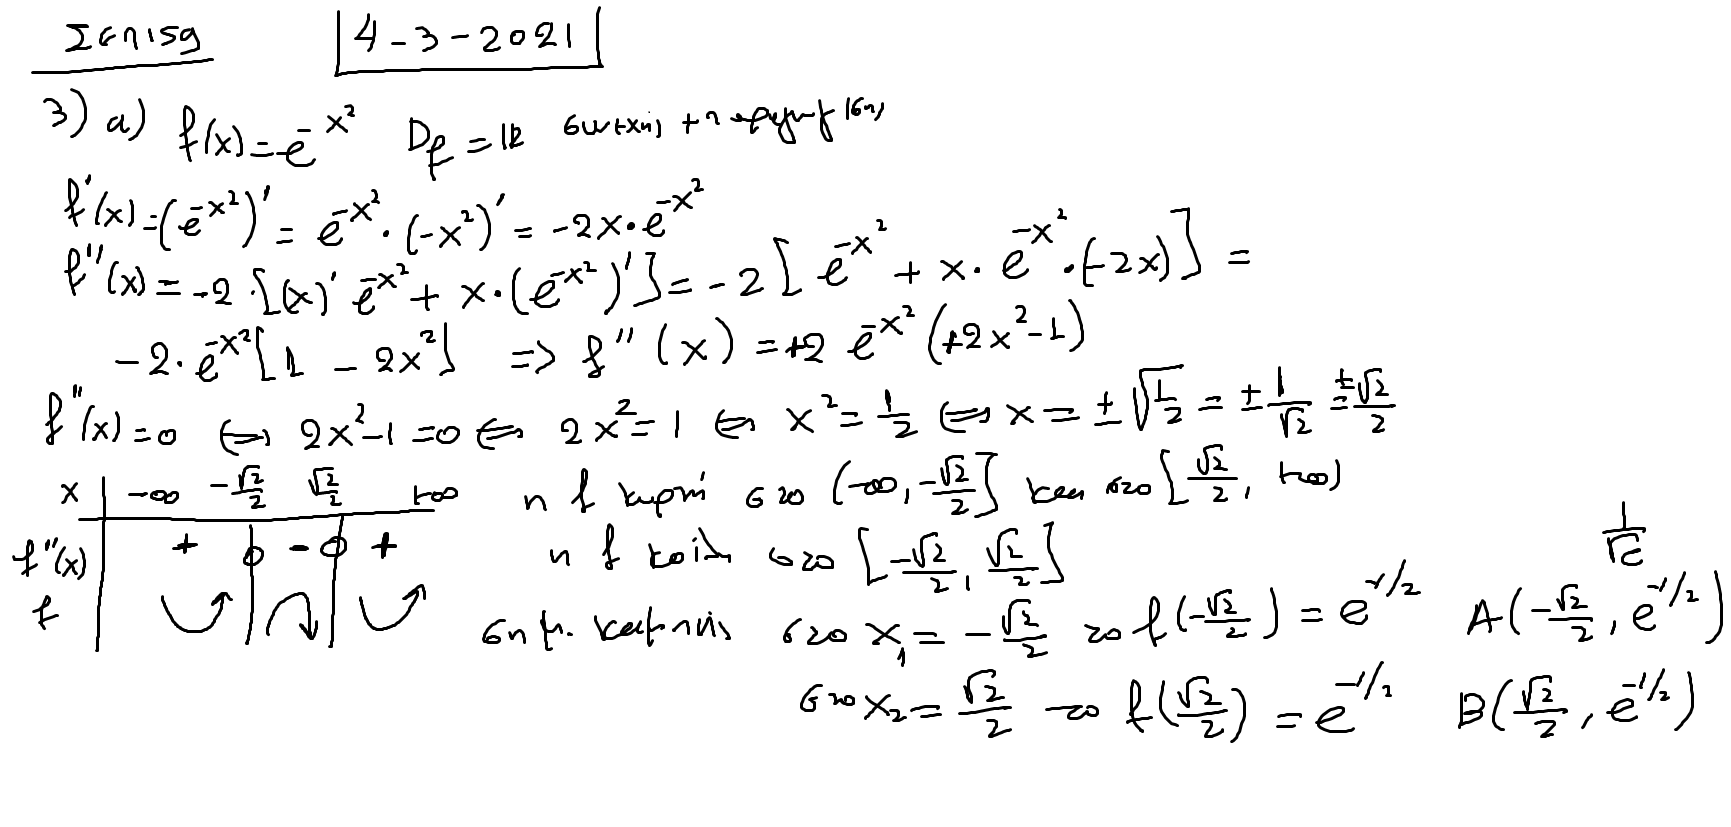 Σελ159 4-3-2021
3) α) f(x)=e^{-x²} D_f = ℝ συνεχής + παραγωγίσιμη
f'(x)=(e^{-x²})' = e^{-x²}·(-x²)' = -2x·e^{-x²}
f''(x) = -2·[(x)' e^{-x²} + x·(e^{-x²})'] = -2[e^{-x²} + x·e^{-x²}·(-2x)] =
-2·e^{-x²}[1 - 2x²] => f''(x) = +2 e^{-x²}(+2x²-1)
f''(x)=0 ⇔ 2x²-1=0 ⇔ 2x²=1 ⇔ x²=1/2 ⇔ x = ±√(1/2) = ±1/√2 = ±√2/2
x | -∞ -√2/2 √2/2 +∞ η f κυρτή στο (-∞, -√2/2] και στο [√2/2, +∞)
f''(x) + 0 - 0 + η f κοίλη στο [-√2/2, √2/2] 1/√e
f σημ. καμπής στο x₁ = -√2/2 το f(-√2/2) = e^{-1/2} A(-√2/2, e^{-1/2})
στο x₂ = √2/2 το f(√2/2) = e^{-1/2} B(√2/2, e^{-1/2})